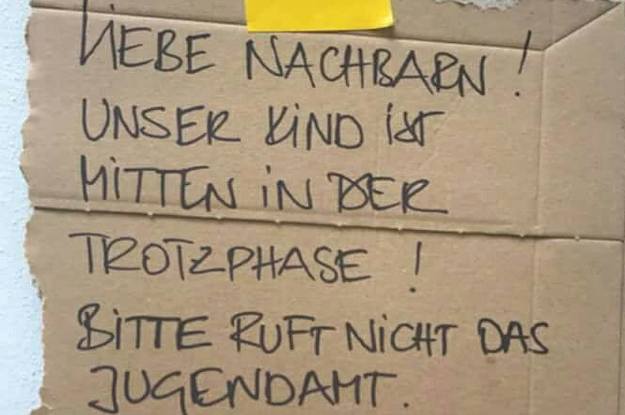 LIEBE NACHBARN!
UNSER KIND IST
MITTEN IN DER
TROTZPHASE!
BITTE RUFT NICHT DAS
JUGENDAMT.